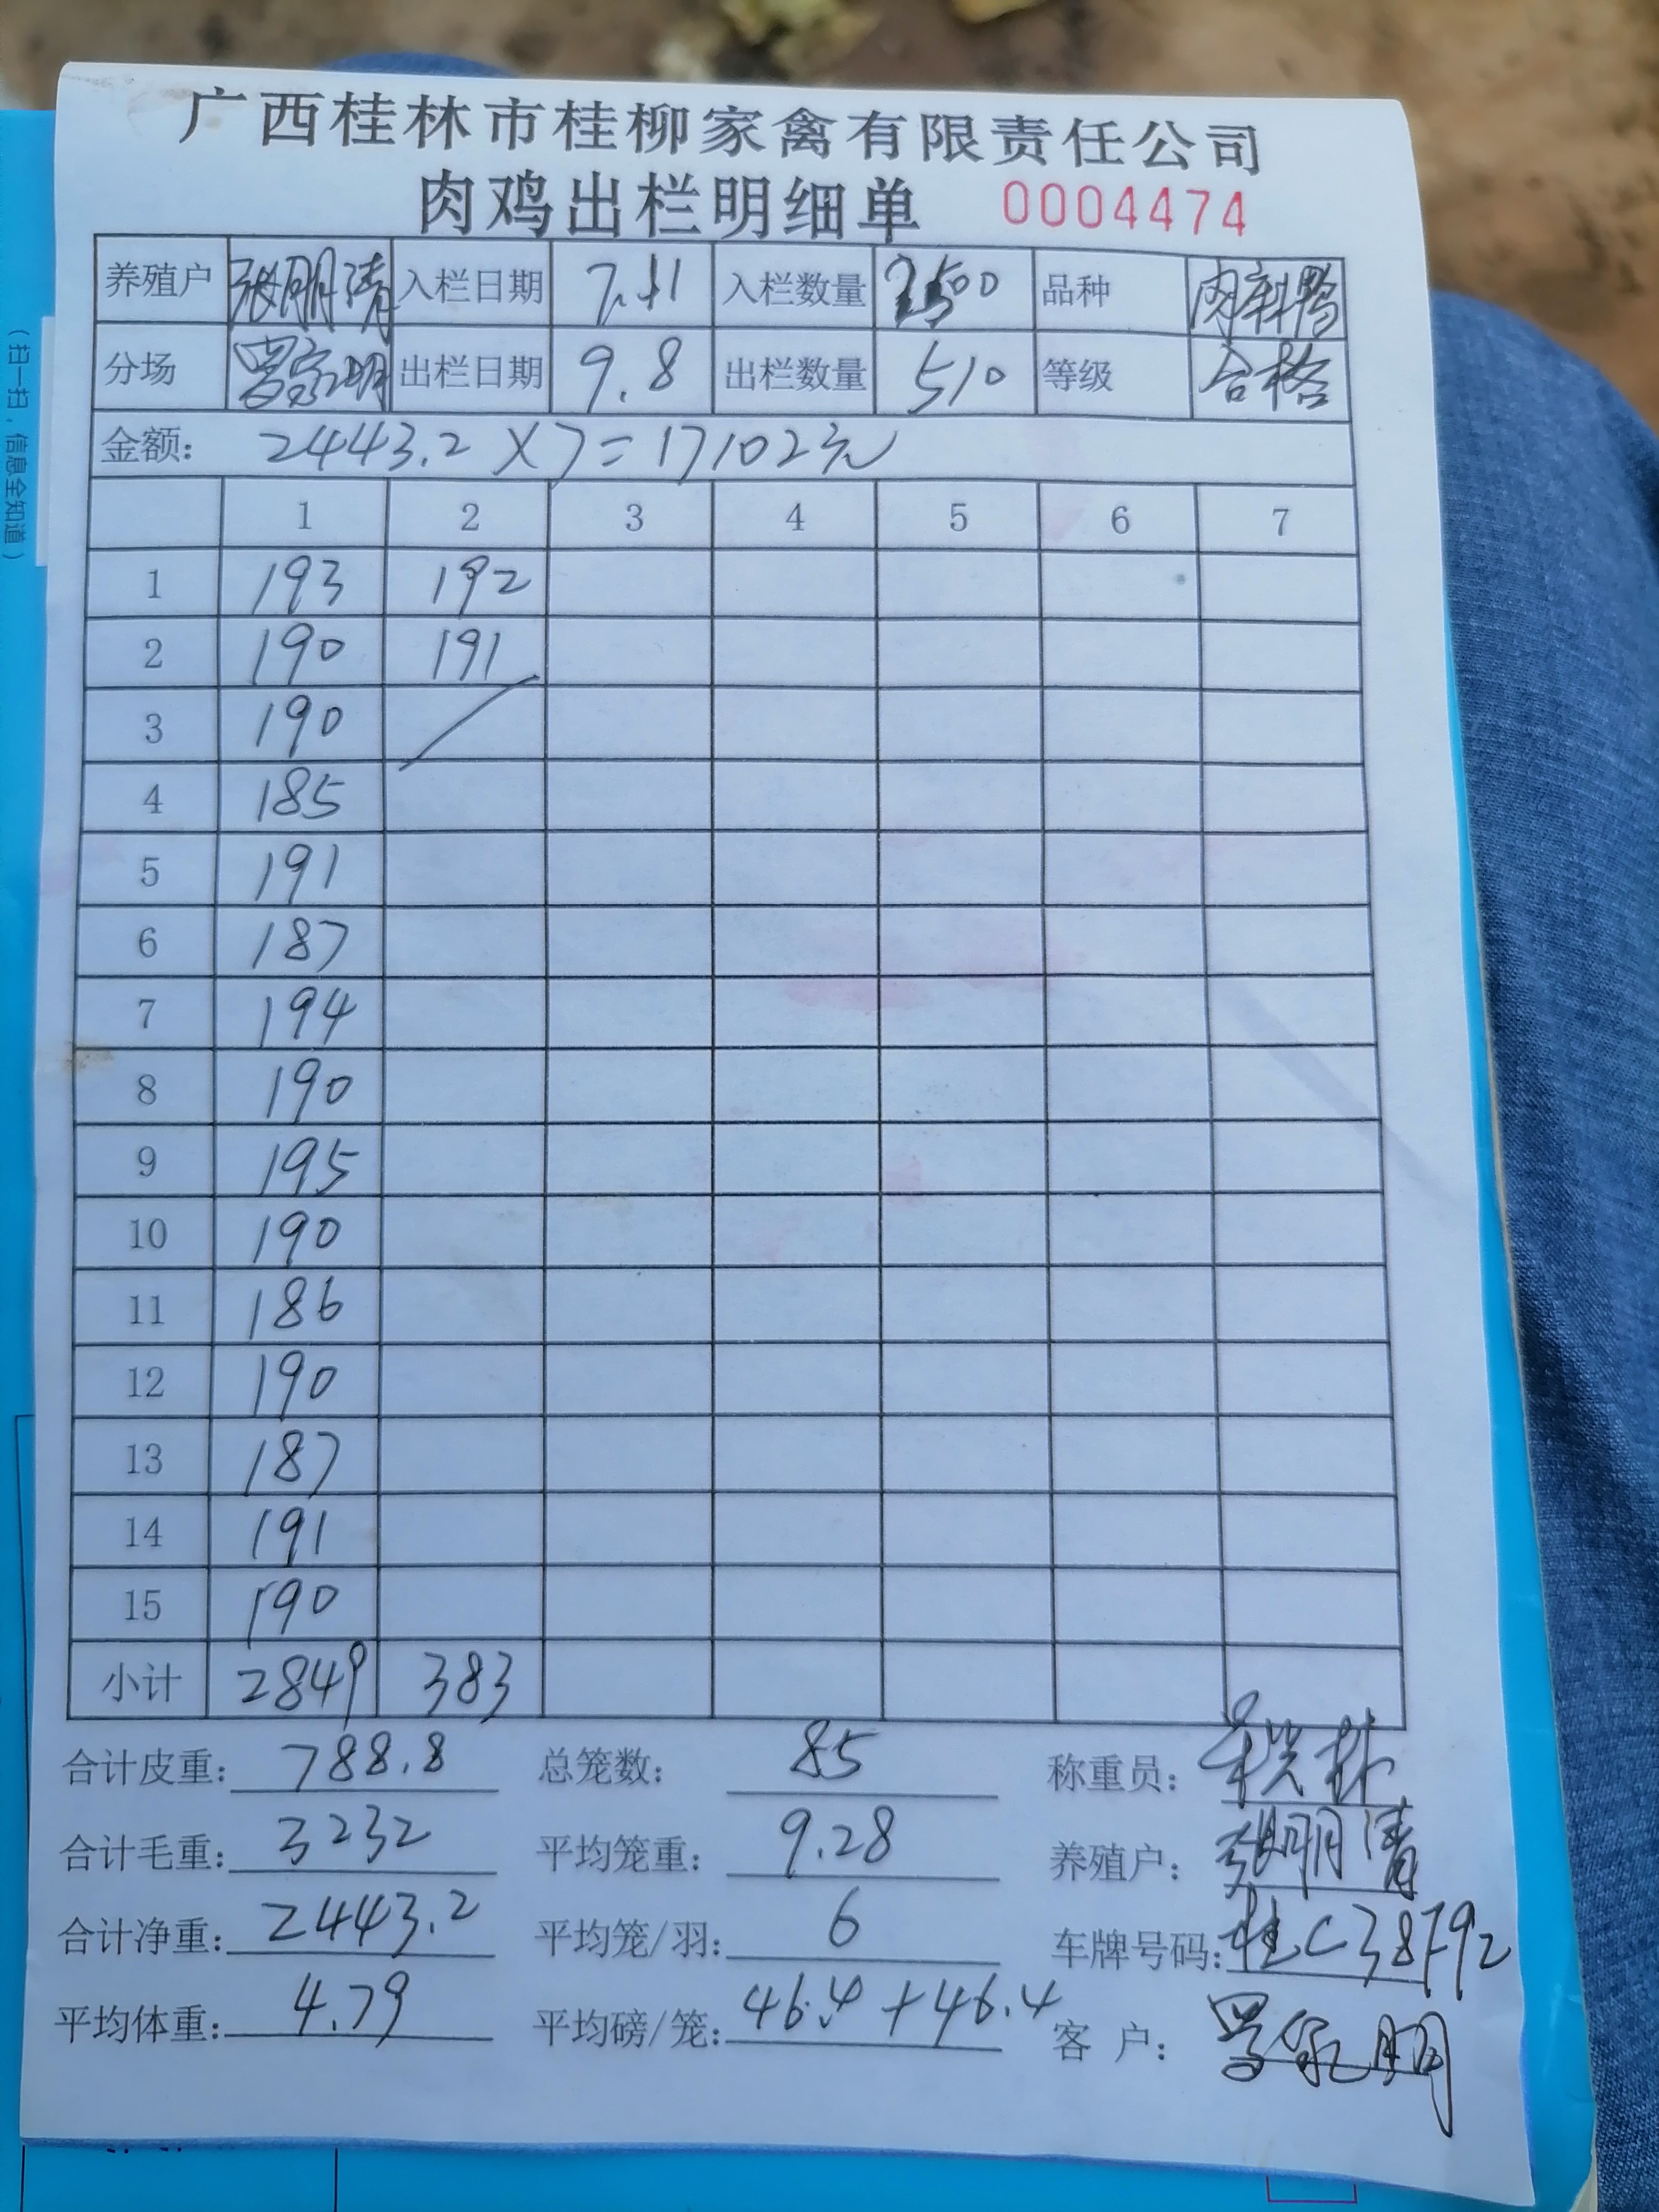 广西桂林市桂柳家禽有限责任公司
肉鸡出栏明细单 0004474
养殖户 张明清 入栏日期 7.11 入栏数量 2500 品种
分场 出栏日期 9.8 出栏数量 510 等级 合格
金额: 2443.2×7=17102元
1 2 3 4 5 6 7
1 193 192
2 190 191
3 190
4 185
5 191
6 187
7 194
8 190
9 195
10 190
11 186
12 190
13 187
14 191
15 190
小计 2849 383
合计皮重: 788.8 总笼数: 85 称重员:
合计毛重: 3232 平均笼重: 9.28 养殖户: 张明清
合计净重: 2443.2 平均笼/羽: 6 车牌号码:
平均体重: 4.79 平均磅/笼: 46.4+46.4 客户:
(扫一扫,信息全知道)